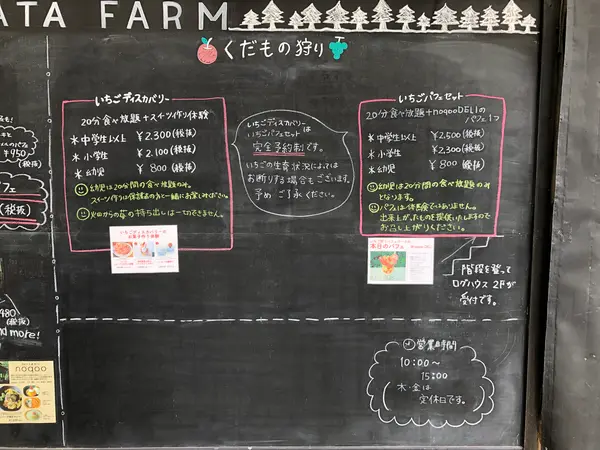 ATA FARM
くだもの狩り
いちごディスカバリー
20分食べ放題+スイーツ作り体験
* 中学生以上 ¥2,300(税抜)
* 小学生 ¥2,100(税抜)
* 幼児 ¥800(税抜)
幼児は20分間の食べ放題のみ。
スイーツ作りは保護者の方と一緒にお楽しみください。
畑からの苺の持ち出しは一切できません。
いちごディスカバリー
いちごパフェセット
は
完全予約制です。
いちごの生育状況によっては
お断りする場合もございます。
予めご了承ください。
いちごパフェセット
20分食べ放題+noqooDELIの
パフェ1つ
* 中学生以上 ¥2,500(税抜)
* 小学生 ¥2,300(税抜)
* 幼児 ¥800(税抜)
幼児は20分間の食べ放題のみ
となります。
パフェは体験ではありません。
出来上がったものを提供いたしますので
お召し上がりください。
本日のパフェ
階段を登って
ログハウス2Fが
受付です。
営業時間
10:00〜
15:00
木・金は
定休日です。
¥950
(税抜)
パフェ
(税抜)
480
(税抜)
and more!
noqoo